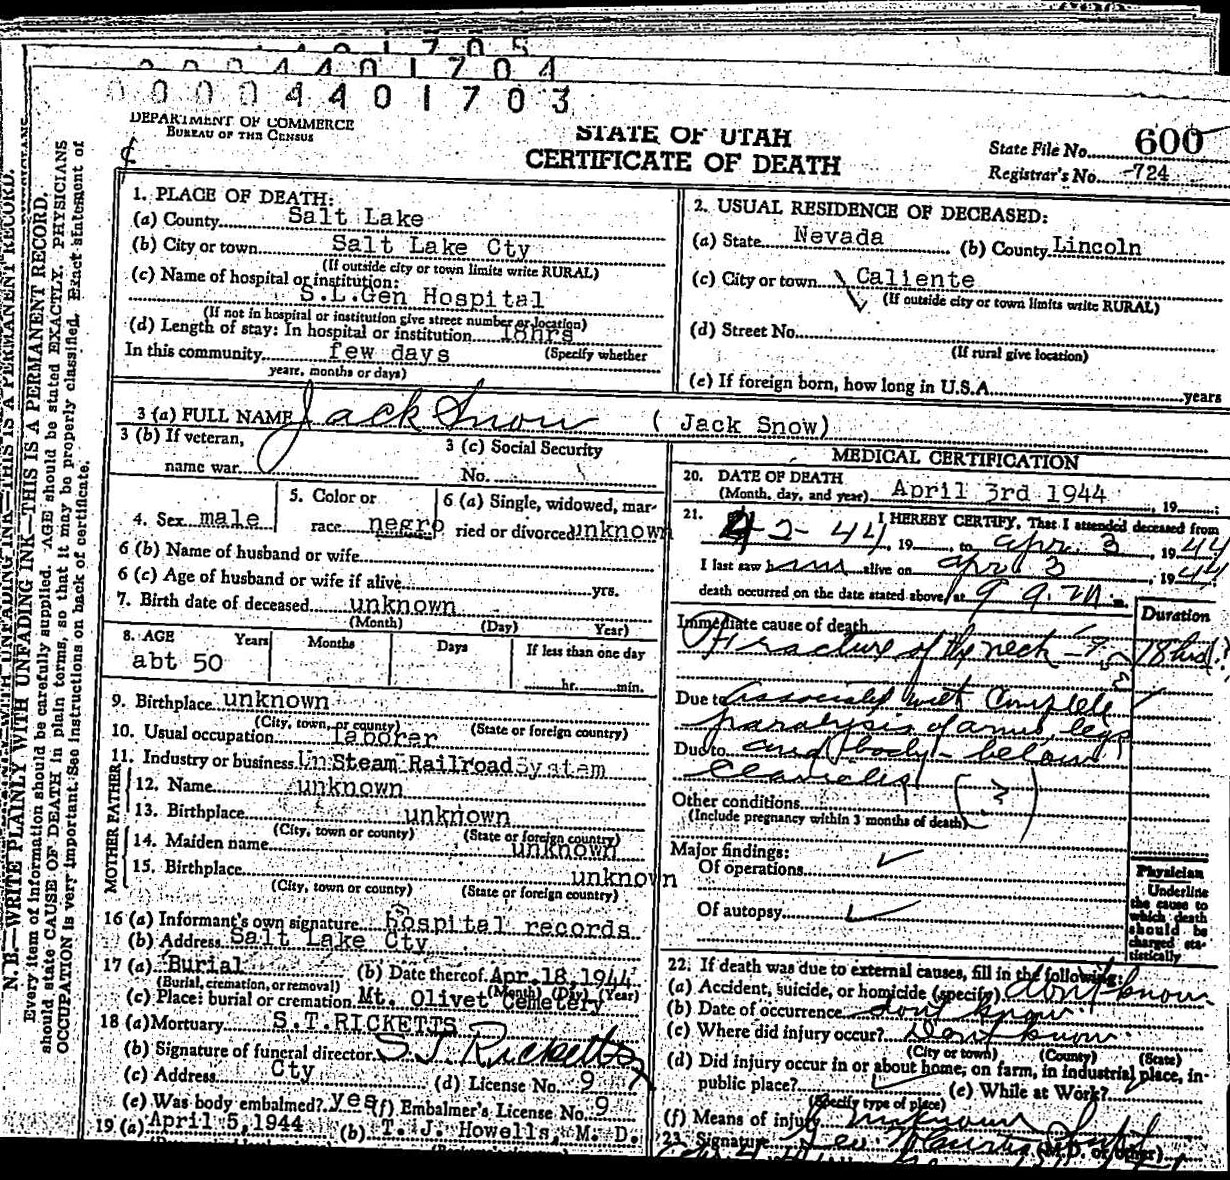 0004401705
0004401704
0004401703
DEPARTMENT OF COMMERCE
BUREAU OF THE CENSUS
STATE OF UTAH
CERTIFICATE OF DEATH
State File No. 600
Registrar's No. 724
N. B.—WRITE PLAINLY WITH UNFADING INK—THIS IS A PERMANENT RECORD.
Every item of information should be carefully supplied. AGE should be stated EXACTLY. PHYSICIANS
should state CAUSE OF DEATH in plain terms, so that it may be properly classified. Exact statement of
OCCUPATION is very important. See instructions on back of certificate.
1. PLACE OF DEATH:
(a) County Salt Lake
(b) City or town Salt Lake Cty
(If outside city or town limits write RURAL)
(c) Name of hospital or institution:
S.L.Gen Hospital
(If not in hospital or institution give street number or location)
(d) Length of stay: In hospital or institution 18hrs
In this community few days (Specify whether
years, months or days)
2. USUAL RESIDENCE OF DECEASED:
(a) State Nevada (b) County Lincoln
(c) City or town Caliente
(If outside city or town limits write RURAL)
(d) Street No.
(If rural give location)
(e) If foreign born, how long in U.S.A. years
3 (a) FULL NAME Jack Snow ( Jack Snow)
3 (b) If veteran,
name war
3 (c) Social Security
No.
4. Sex male
5. Color or
race negro
6 (a) Single, widowed, mar-
ried or divorced unknown
6 (b) Name of husband or wife
6 (c) Age of husband or wife if alive yrs.
7. Birth date of deceased unknown
(Month) (Day) Year)
8. AGE Years Months Days If less than one day
abt 50
hr. min.
9. Birthplace unknown
(City, town, or county) (State or foreign country)
10. Usual occupation laborer
11. Industry or business Un Steam Railroad System
FATHER
12. Name unknown
13. Birthplace unknown
(City, town or county) (State or foreign country)
MOTHER
14. Maiden name unknown
15. Birthplace unknown
(City, town or county) (State or foreign country)
16 (a) Informant's own signature hospital records
(b) Address Salt Lake Cty
17 (a) Burial (b) Date thereof Apr.18,1944
(Burial, cremation, or removal) (Month) (Day) (Year)
(c) Place: burial or cremation Mt. Olivet Cemetery
18 (a) Mortuary S.T.RICKETTS
(b) Signature of funeral director S T Ricketts
(c) Address Cty (d) License No. 9
(e) Was body embalmed? yes (f) Embalmer's License No. 9
19 (a) April 5,1944 (b) T. J. Howells, M. D.
MEDICAL CERTIFICATION
20. DATE OF DEATH
(Month, day, and year) April 3rd 1944, 19
21. I HEREBY CERTIFY, That I attended deceased from
4-2-44, 19 , to Apr. 3, 1944
I last saw him alive on Apr 3, 1944
death occurred on the date stated above, at 9 a.m. m.
Immediate cause of death
Duration
Fracture of the neck 18 hrs (?)
Due to Associated with Complete
paralysis of arms, legs
Due to and body - below
Clavicles (?)
Other conditions
(Include pregnancy within 3 months of death)
Major findings:
Of operations
Of autopsy
Physician
Underline
the cause to
which death
should be
charged sta-
tistically
22. If death was due to external causes, fill in the following:
(a) Accident, suicide, or homicide (specify) don't know
(b) Date of occurrence don't know
(c) Where did injury occur? Don't know
(City or town) (County) (State)
(d) Did injury occur in or about home, on farm, in industrial place, in-
public place? (e) While at Work?
(Specify type of place)
(f) Means of injury unknown
23. Signature (M.D. or other)